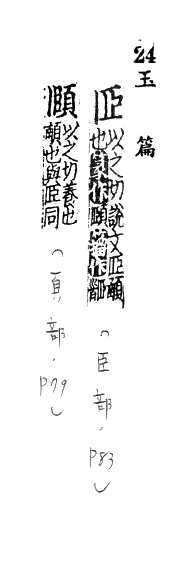 24玉篇
𦣝 以之切說文𦣝顄
也篆作頤籀作𩠡
(𦣝部.P83)
頤 以之切養也
顄也與𦣝同
(頁部.P79)